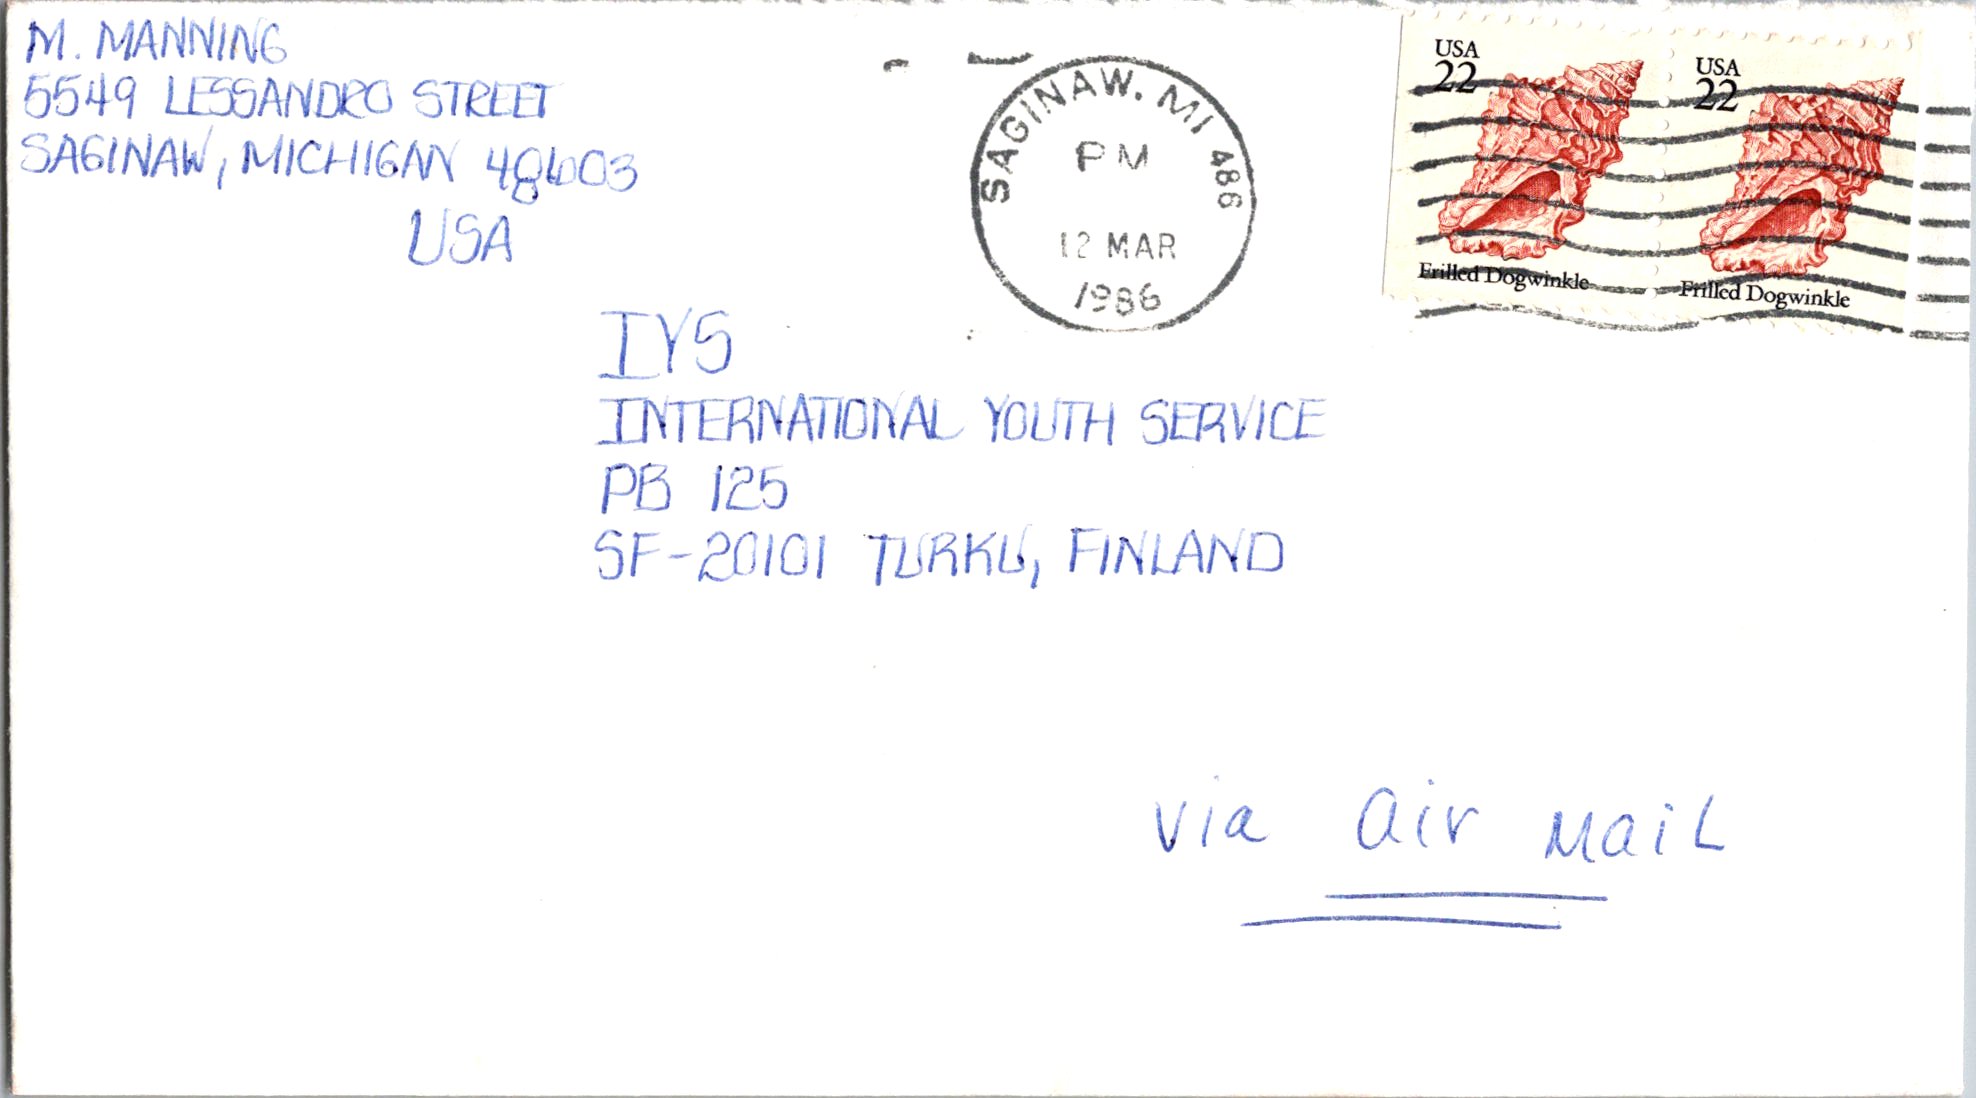 M. MANNING
5549 LESSANDRO STREET
SAGINAW, MICHIGAN 48603
USA
SAGINAW, MI 486
PM
12 MAR
1986
USA
22
Frilled Dogwinkle
USA
22
Frilled Dogwinkle
IYS
INTERNATIONAL YOUTH SERVICE
PB 125
SF-20101 TURKU, FINLAND
Via Air Mail